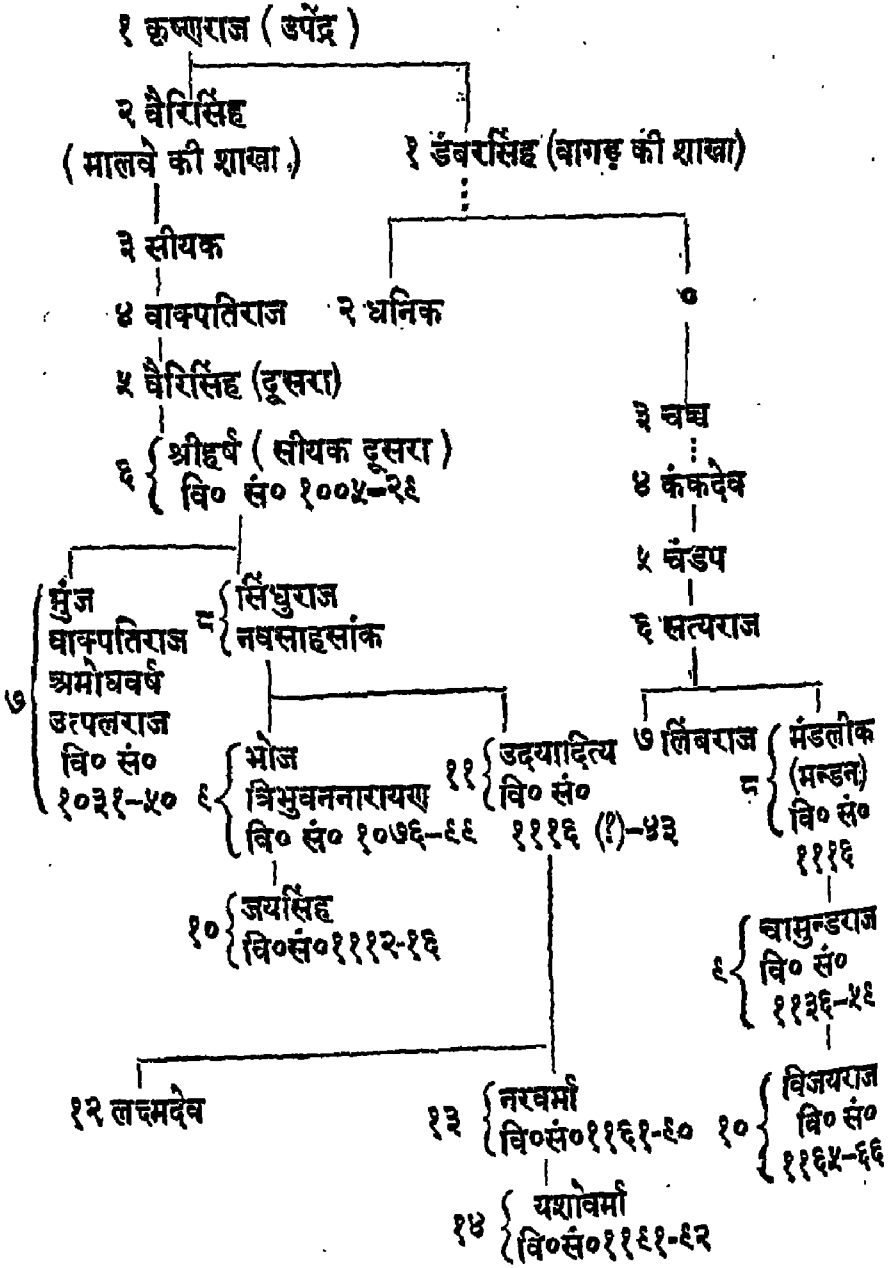 १ कृष्णराज ( उपेंद्र )
२ वैरिसिंह
( मालवे की शाखा )
१ डंबरसिंह (वागड़ की शाखा)
३ सीयक
४ वाक्पतिराज
२ धनिक
०
५ वैरिसिंह (दूसरा)
३ चच्च
६ { श्रीहर्ष ( सीयक दूसरा )
वि० सं० १००५-२९
४ कंकदेव
५ चंडप
७ { मुंज
वाक्पतिराज
अमोघवर्ष
उत्पलराज
वि० सं०
१०३१-५०
८ { सिंधुराज
नवसाहसांक
६ सत्यराज
९ { भोज
त्रिभुवननारायण
वि० सं० १०७६-९९
११ { उदयादित्य
वि० सं०
१११६ (?)-४३
७ लिंबराज
८ { मंडलीक
(मन्डन)
वि० सं०
१११६
१० { जयसिंह
वि०सं०१११२-१६
९ { चामुन्डराज
वि० सं०
११३६-५९
१२ लक्ष्मदेव
१३ { नरवर्मा
वि०सं०११६१-९०
१० { विजयराज
वि० सं०
११६५-६६
१४ { यशोवर्मा
वि०सं०११९१-९२